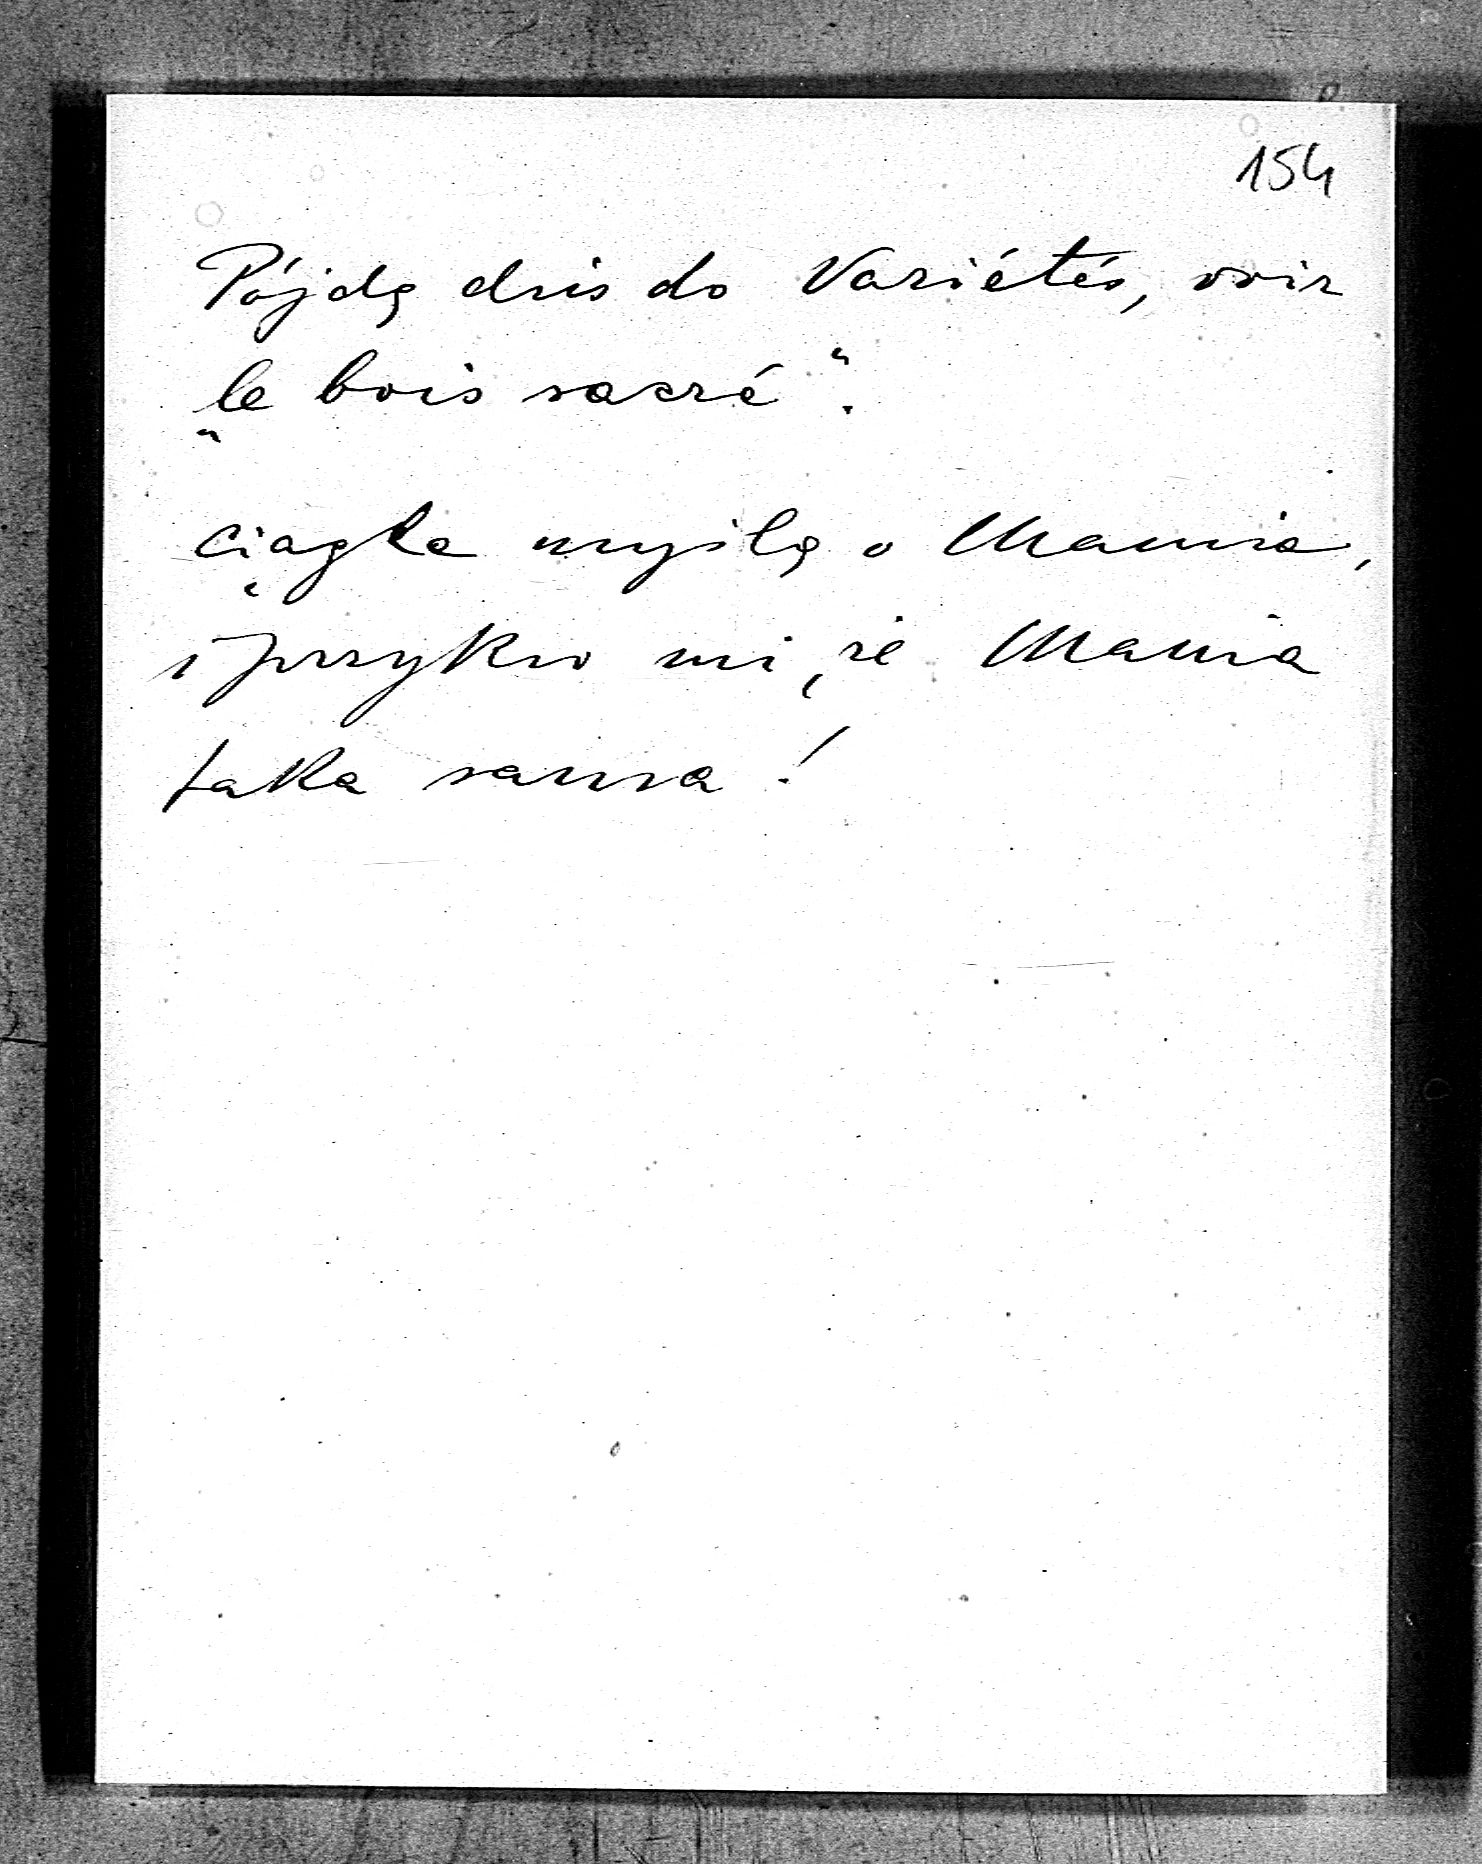 154
Pójdę dziś do Variétés, voir
„le bois sacré“.
ciągle myślę o Mamie,
i przykro mi, że Mama
taka sama!